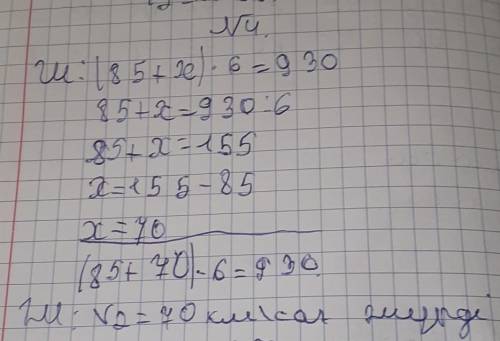 N4.
Ш: (85+x)·6=930
85+x=930:6
85+x=155
x=155-85
x=70
(85+70)·6=930
Ш: V2=70 км\сағ